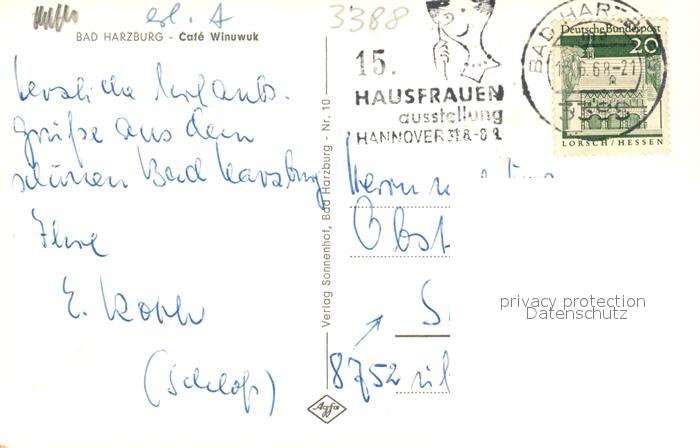 erl. A
3388
BAD HARZBURG - Café Winuwuk
herzliche Urlaubs-
grüße aus dem
schönen Bad Harzburg
Ihre
E.
(Schloß)
Verlag Sonnenhof, Bad Harzburg - Nr. 10
Agfa
15.
HAUSFRAUEN
ausstellung
HANNOVER 31.8.-8.9.
BAD HARZB
-21
3388
Deutsche Bundespost
20
LORSCH/HESSEN
Herrn u.
Obst
8752
privacy protection
Datenschutz